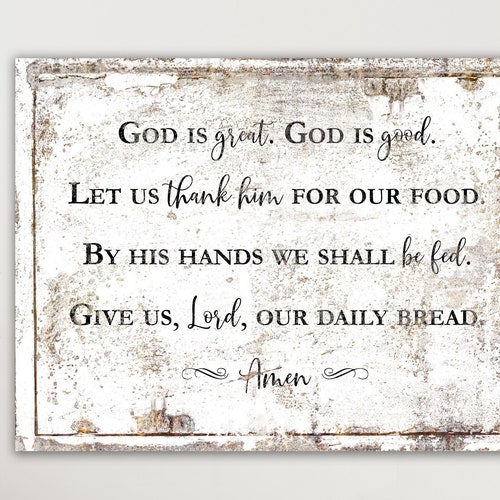 GOD IS great. GOD IS good.
LET US thank him FOR OUR FOOD.
BY HIS HANDS WE SHALL be fed.
GIVE US, Lord, OUR DAILY BREAD.
Amen